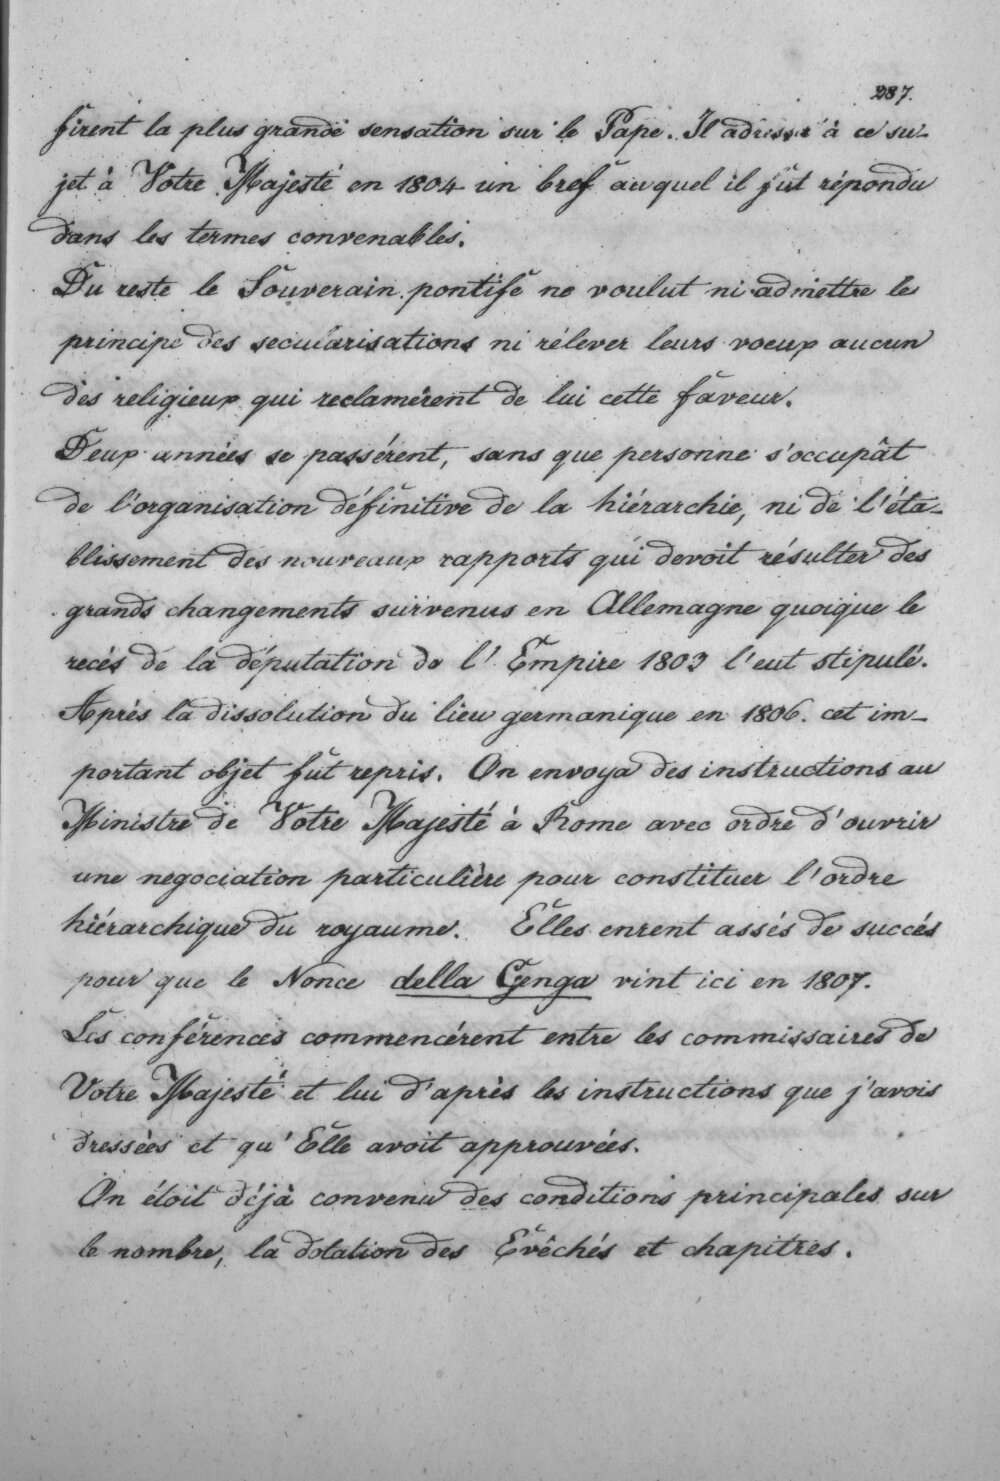 287.
firent la plus grande sensation sur le Pape. Il adressa à ce su-
jet à Votre Majesté en 1804 un bref auquel il fut répondu
dans les termes convenables.
Du reste le Souverain pontife ne voulut ni admettre le
principe des secularisations ni rélever leurs voeux aucun
des religieux qui reclamèrent de lui cette faveur.
Deux années se passérent, sans que personne s'occupât
de l'organisation définitive de la hiérarchie, ni de l'éta-
blissement des nouveaux rapports qui devoit résulter des
grands changements survenus en Allemagne quoique le
recés de la députation de l'Empire 1803 l'eut stipulé.
Après la dissolution du lieu germanique en 1806. cet im-
portant objet fut repris. On envoya des instructions au
Ministre de Votre Majesté à Rome avec ordre d'ouvrir
une negociation particulière pour constituer l'ordre
hiérarchique du royaume. Elles enrent assés de succés
pour que le Nonce della Genga vint ici en 1807.
Les conférences commencérent entre les commissaires de
Votre Majesté et lui d'après les instructions que j'avois
dressées et qu'Elle avoit approuvées.
On étoit déjà convenu des conditions principales sur
le nombre, la dotation des Evêchés et chapitres.